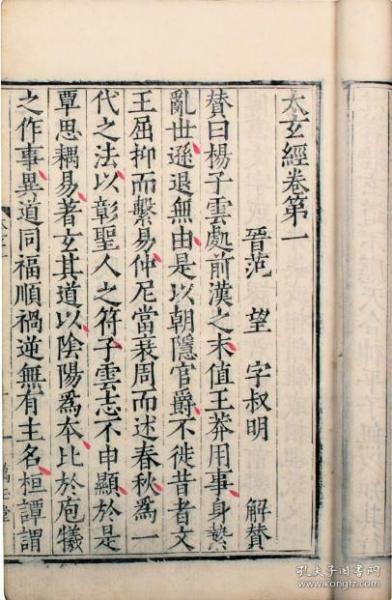 太玄經卷第一
晉范 望 字叔明 解贊
贊曰楊子雲處前漢之末值王莽用事身縶
亂世遜退無由是以朝隱官爵不徙昔者文
王屈抑而繫易仲尼當衰周而述春秋爲一
代之法以彰聖人之符子雲志不申顯於是
覃思耦易著玄其道以陰陽爲本比於庖犧
之作事異道同福順禍逆無有主名桓譚謂
萬玉堂
孔夫子旧书网